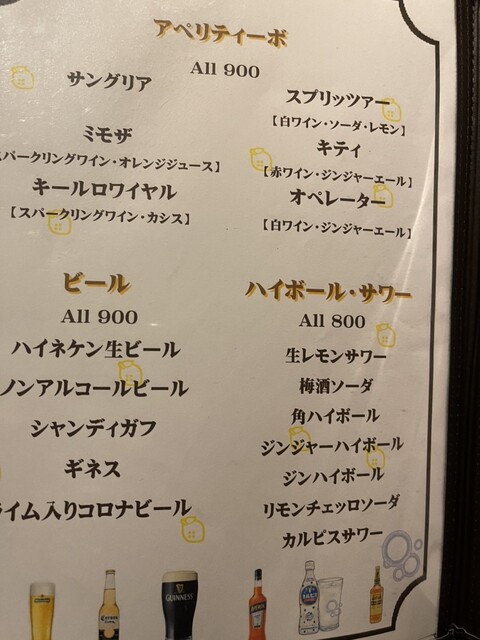 アペリティーボ
All 900
サングリア
ミモザ
スパークリングワイン・オレンジジュース】
キールロワイヤル
【スパークリングワイン・カシス】
スプリッツァー
【白ワイン・ソーダ・レモン】
キティ
【赤ワイン・ジンジャーエール】
オペレーター
【白ワイン・ジンジャーエール】
ビール
All 900
ハイネケン生ビール
ノンアルコールビール
シャンディガフ
ギネス
ライム入りコロナビール
ハイボール・サワー
All 800
生レモンサワー
梅酒ソーダ
角ハイボール
ジンジャーハイボール
ジンハイボール
リモンチェッロソーダ
カルピスサワー
Corona
GUINNESS